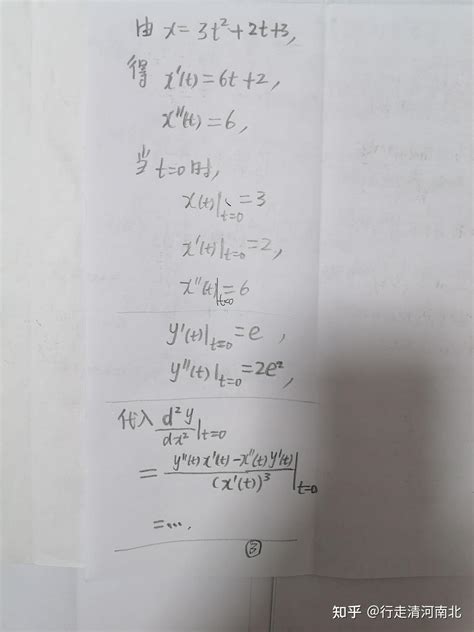 由 x=3t²+2t+3,
得 x'(t)=6t+2,
x''(t)=6,
当 t=0时,
x(t)|t=0=3
x'(t)|t=0=2,
x''(t)|t=0=6
y'(t)|t=0=e,
y''(t)|t=0=2e²,
代入 d²y/dx²|t=0
= (y''(t)x'(t)-x''(t)y'(t))/(x'(t))³|t=0
=….
③
知乎 @行走清河南北